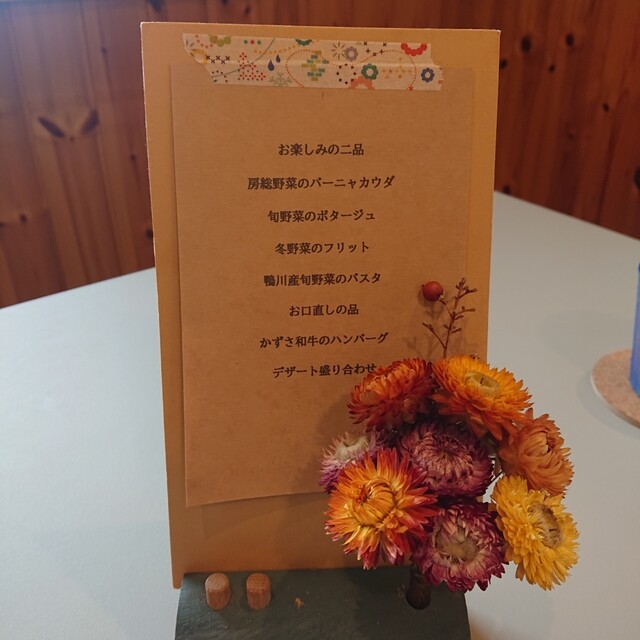 お楽しみの二品
房総野菜のバーニャカウダ
旬野菜のポタージュ
冬野菜のフリット
鴨川産旬野菜のパスタ
お口直しの品
かずさ和牛のハンバーグ
デザート盛り合わせ